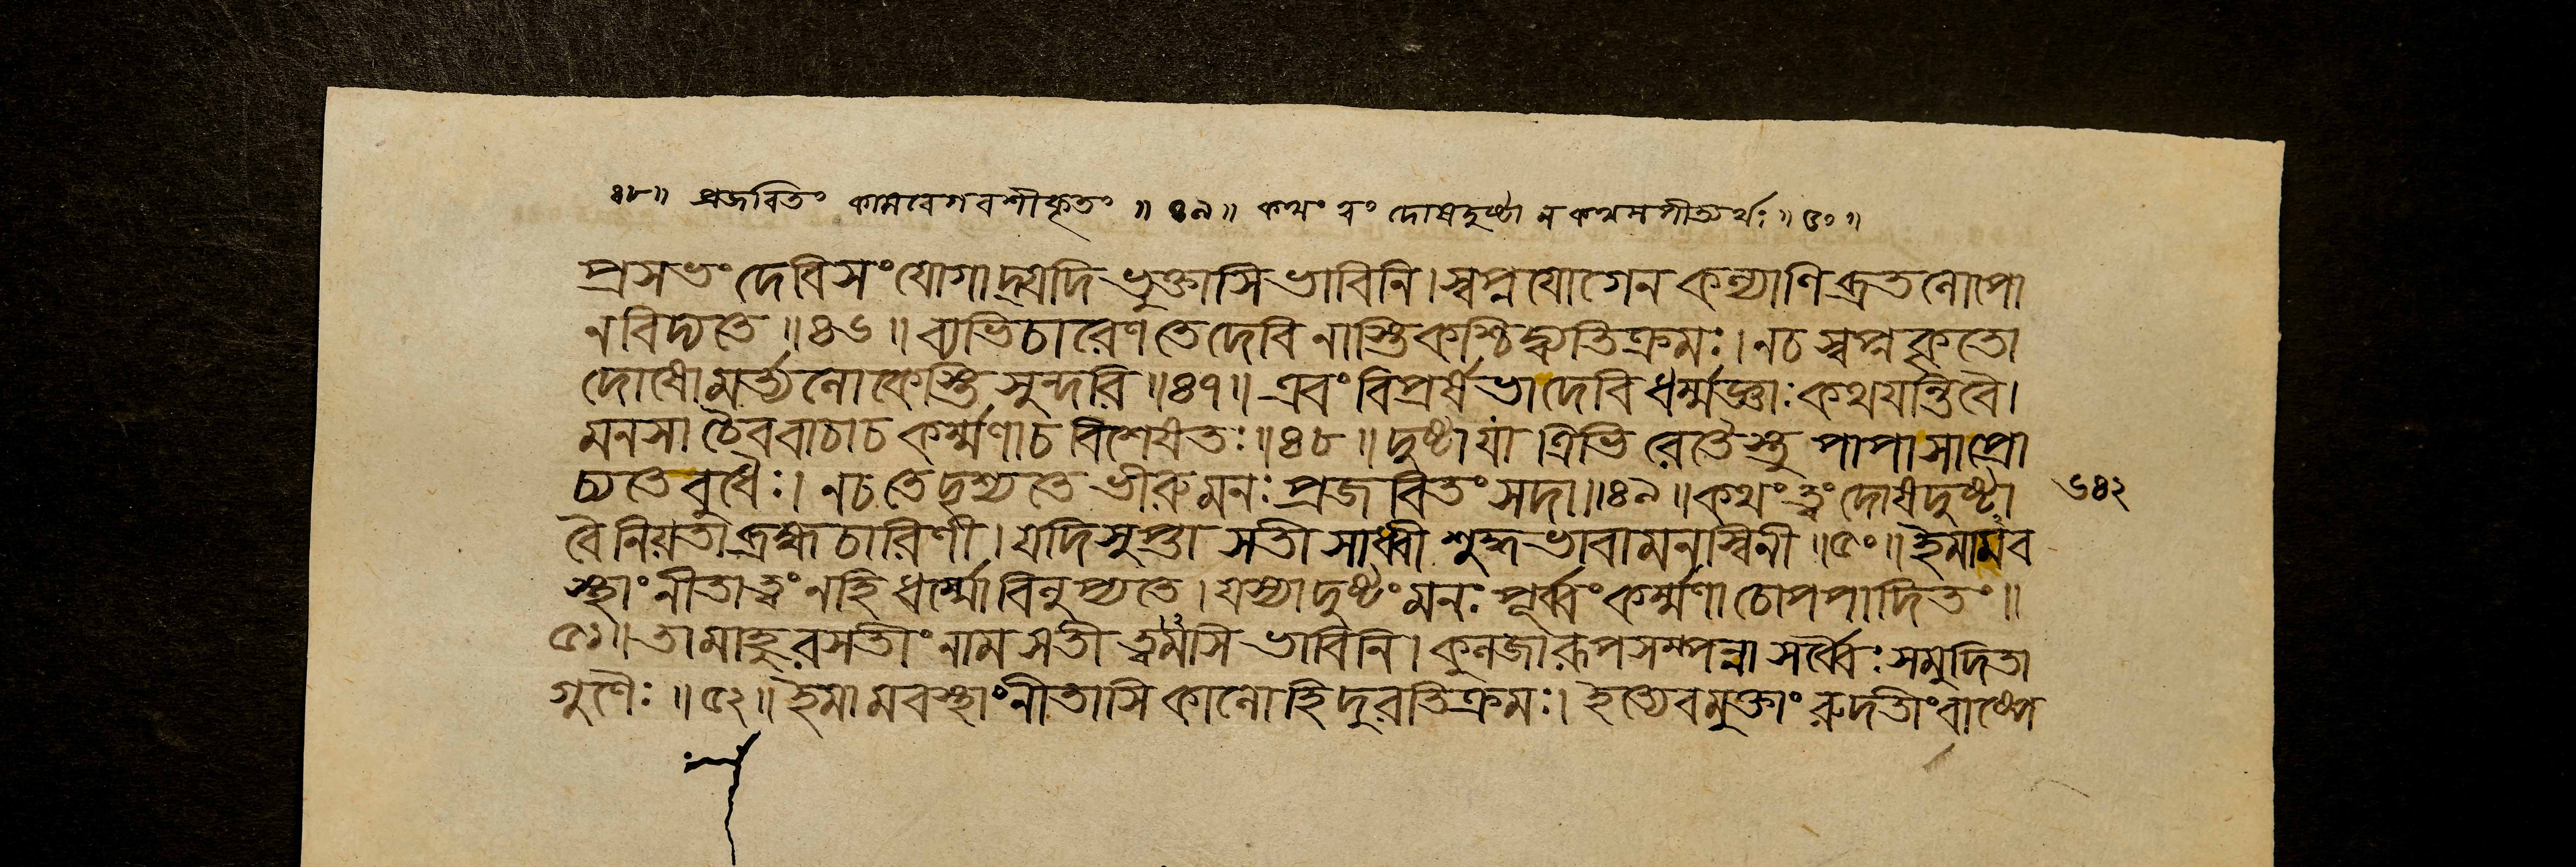 ৪৮॥ প্রজবিতং কামবেগবশীকৃতং ॥ ৪৯॥ কথং ত্বং দোষদুষ্টা ন কথমপীত্যর্থঃ॥৫০॥
প্রসভংদেবিসংযোগাদ্যদিভুক্তাসিভাবিনি।স্বপ্নযোগেনকল্যাণিব্রতলোপো
নবিদ্যতে॥৪৬॥ব্যভিচারেণতেদেবিনাস্তিকশ্চিদ্ব্যতিক্রমঃ।নচস্বপ্নকৃতো
দোষোমর্ত্ত্যলোকেস্তিসুন্দরি॥৪৭॥এবংবিপ্রর্ষভাদেবিধর্ম্মজ্ঞাঃকথয়ন্তিবৈ।
মনসাচৈববাচাচকর্ম্মণাচবিশেষতঃ॥৪৮॥দুষ্টাযাত্রিভিরেতৈস্তুপাপাসাপ্রো
চ্যতেবুধৈঃ।নচতেদৃশ্যতেভীরুমনঃপ্রজবিতংসদা॥৪৯॥কথংত্বংদোষদুষ্টা ৬৪২
বৈনিয়তাব্রহ্মচারিণী।যদিসুপ্তাসতীসাধ্বীশুদ্ধভাবামনস্বিনী॥৫০॥ইমামব
স্থাংনীতাত্বংনহিধর্ম্মোবিলুপ্যতে।যস্যাদুষ্টংমনঃপূর্ব্বংকর্ম্মণাচোপপাদিতং॥
৫১॥তামাহুরসতীংনামসতীত্বমসিভাবিনি।কুলজারূপসম্পন্নাসর্ব্বৈঃসমুদিতা
গুণৈঃ॥৫২॥ইমামবস্থাংনীতাসিকালোহিদুরতিক্রমঃ।ইত্যেবমুক্তাংরুদতীংবাষ্পে